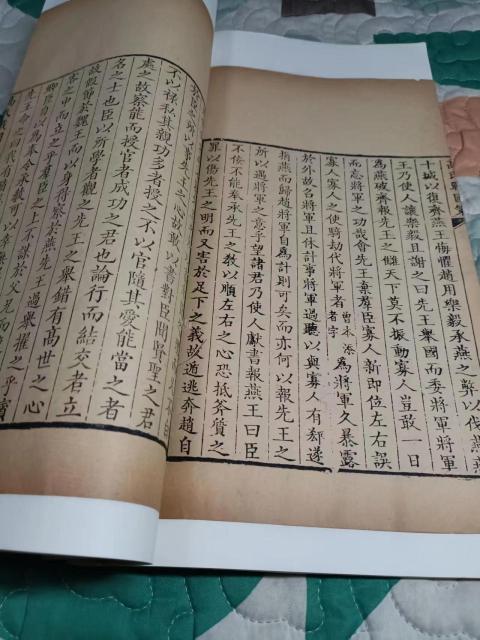 十城以復齊燕王悔懼趙用樂毅承燕之弊以伐燕燕
王乃使人讓樂毅且謝之曰先王舉國而委將軍將軍
為燕破齊報先王之讎天下莫不振動寡人豈敢一日
而忘將軍之功哉會先王棄羣臣寡人新即位左右誤
寡人寡人之使騎劫代將軍者曾本添者字為將軍久暴露
於外故召將軍且休計事將軍過聽以與寡人有郄遂
捐燕而歸趙將軍自為計則可矣而亦何以報先王之
所以遇將軍之意乎望諸君乃使人獻書報燕王曰臣
不佞不能奉承先王之教以順左右之心恐抵斧質之
罪以傷先王之明而又害於足下之義故遁逃奔趙自
以書對臣聞賢聖之君
不以祿私其親功多者授之不以官隨其愛能當之者
處之故察能而授官者成功之君也論行而結交者立
名之士也臣以所學者觀之先王之舉錯有高世之心
故假節於魏王而以身得察於燕先王過舉擢之乎賓
客之中而立之乎羣臣之上不謀於父兄而
臣自以為奉令承教可以幸